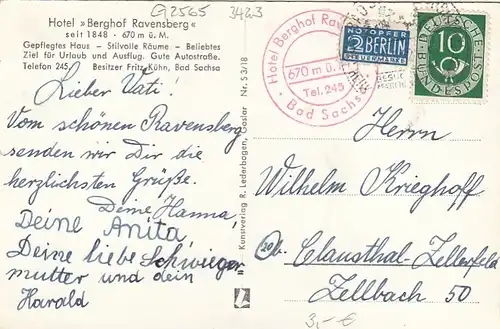 G2565 3423
Hotel »Berghof Ravensberg«
seit 1848 · 670 m ü. M.
Gepflegtes Haus – Stilvolle Räume – Beliebtes
Ziel für Urlaub und Ausflug. Gute Autostraße.
Telefon 245 . Besitzer Fritz Kühn, Bad Sachsa
Lieber Vati!
Vom schönen Ravensberg
senden wir Dir die
herzlichsten Grüße.
Deine Hanna,
Deine Anita
Deine liebe Schwieger
mutter und dein
Harald
Kunstverlag R. Lederbogen, Goslar Nr. S 3/18
Hotel Berghof
670 m ü. M.
Tel. 245
Bad Sachsa
NOTOPFER
2 BERLIN
STEUERMARKE
DEUTSCHE
BUNDESPOST
10
Herrn
Wilhelm Krieghoff
20b Clausthal-Zellerfeld
Zellbach 50
3,- €